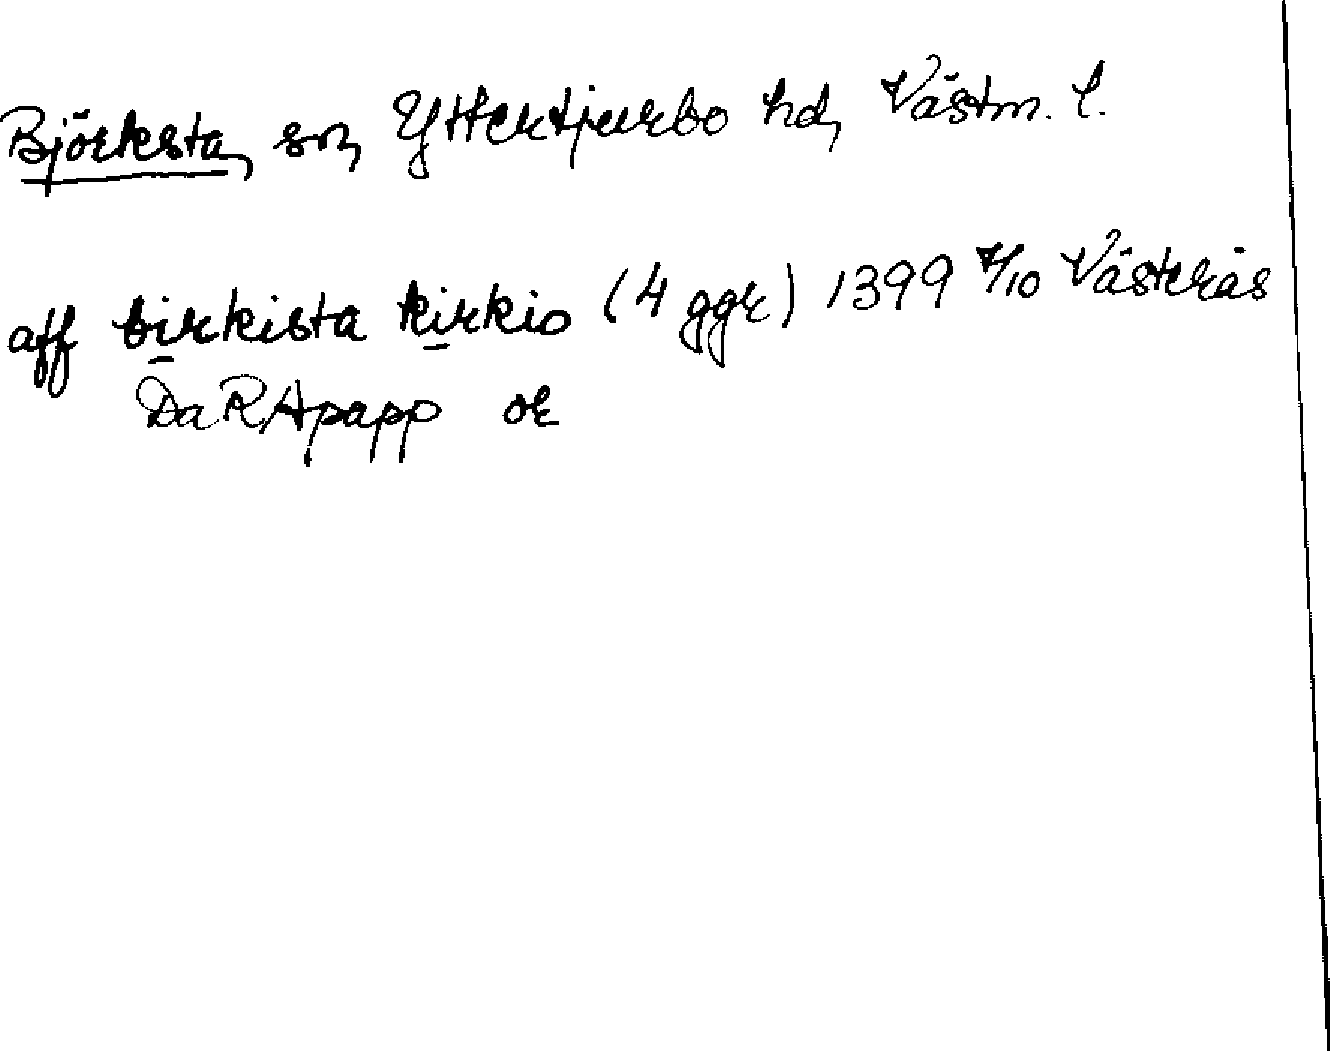 Björksta, sn, Yttertjurbo hd, Västm. l.
aff birkista kirkio (4 ggr) 1399 7/10 Västerås
DaRApapp or